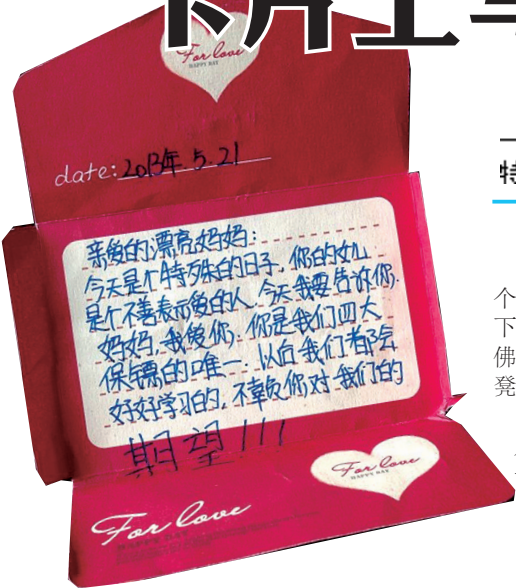 卡片上
For love
HAPPY DAY
date: 2013年 5. 21
亲爱的漂亮妈妈:
今天是个特殊的日子, 你的女儿
是个不善表示爱的人. 今天我要告诉你.
妈妈, 我爱你, 你是我们四大
保镖的唯一. 以后我们都会
好好学习的, 不辜负你对我们的
期望!!!
For love
HAPPY DAY
For love
HAPPY DAY
特
个
下
佛
凳